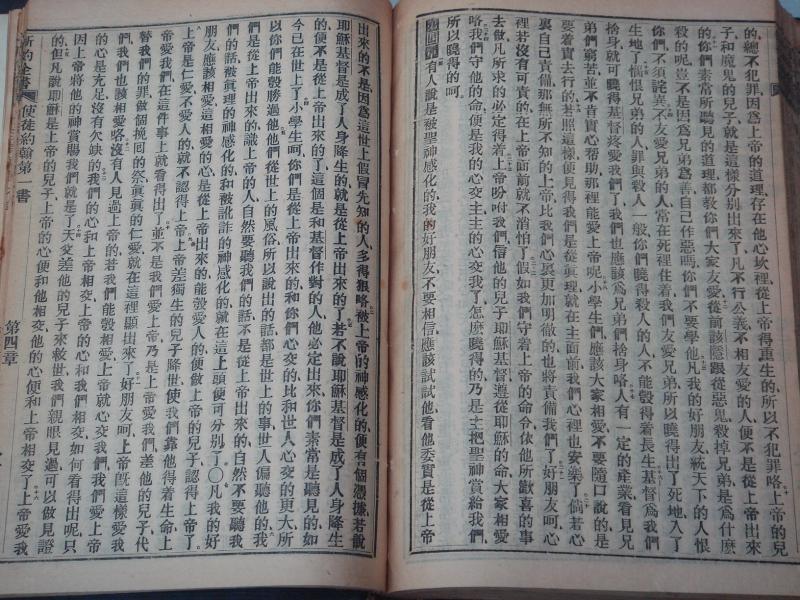 的總不犯罪因爲上帝的道理存在他心坎裡從上帝得重生的所以不犯罪咯上帝的兒
子和魔鬼的兒子就是這樣分別出來了凡不行公義不相友愛的人便不是從上帝出來
的你們素常所聽見的道理都教你們大家友愛從前該隱跟從惡鬼殺掉兄弟是爲什麽
殺的呢豈不是因爲兄弟爲善自己作惡嗎你們不要學他凡我的好朋友統天下的人恨
你們不須詫異不友愛兄弟的人常在死裡住着我們友愛兄弟所以曉得出了死地入了
生地了惱恨兄弟的人罪與殺人一般你們曉得殺人的人不能彀得着長生基督爲我們
捨身就可曉得基督疼愛我們了我們也應該爲兄弟們捨身咯人有一定的產業看見兄
弟們窮苦並不肯實心幫助那裡能愛上帝呢小學生們應該大家相愛不要隨口說的是
要着實去行的若照這樣便見得我們是從眞理就在主面前我們心裡也安樂了倘若心
裏自己責備那無所不知的上帝比我們心裏更加明徹的也將責備我們了好朋友呵心
裡若沒有可責的在上帝面前就不消怕了假如我們守着上帝的命令依他所歡喜的事
去做凡所求的必定得着上帝吩咐我們信他的兒子耶穌基督遵從耶穌的命大家相愛
咯我們守他的命便是我的心交主主的心交我了怎麽曉得的乃是主把聖神賞給我們
所以曉得的呵
第四章有人說是被聖神感化的我的好朋友不要相信應該試試他看他委實是從上帝
出來的不是因爲這世上假冒先知的人多得狠咯被上帝的神感化的便有個憑據若說
耶穌基督是成了人身降生的就是從上帝出來的了若不說耶穌基督是成了人身降生
的便不是從上帝出來的了這個是和基督作對的人他必定出來你們素常是聽見的如
今已在世上了小學生呵你們是從上帝出來的和你們心交的比和世人心交的更大所
以你們能彀勝過他他們從世上的風俗所以說出的話都是世上的事世人偏聽他的我
們是從上帝出來的識上帝的人自然要聽我們的話不是從上帝出來的自然不要聽我
們的話被眞理的神感化的和被訛詐的神感化的就在這上頭便可分別了〇凡我的好
朋友應該相愛這相愛的心是從上帝出來的能彀愛人的便做上帝的兒子認得上帝了
上帝是仁愛不愛人的就不認得上帝上帝差獨生的兒子降世使我們靠他得着生命上
帝愛我們在這件事上就看得出了並不是我們愛上帝乃是上帝愛我們差他的兒子代
替我們的罪做個挽囘的祭眞眞的仁愛就在這裡顯出來了好朋友呵上帝旣這樣愛我
們我們也該相愛咯沒有人見過上帝的若我們能彀相愛上帝就心交我們我們愛上帝
的心是充足沒有欠缺的我們的心和上帝相交上帝的心和我們相交如何看得出呢只
因上帝將他的神賞賜我們就是了天父差他的兒子來救世我們親眼見過可以做見證
的但凡說耶穌是上帝的兒子上帝的心便和他相交他的心便和上帝相交了上帝愛我
新約全書 使徒約翰第一書
第四章